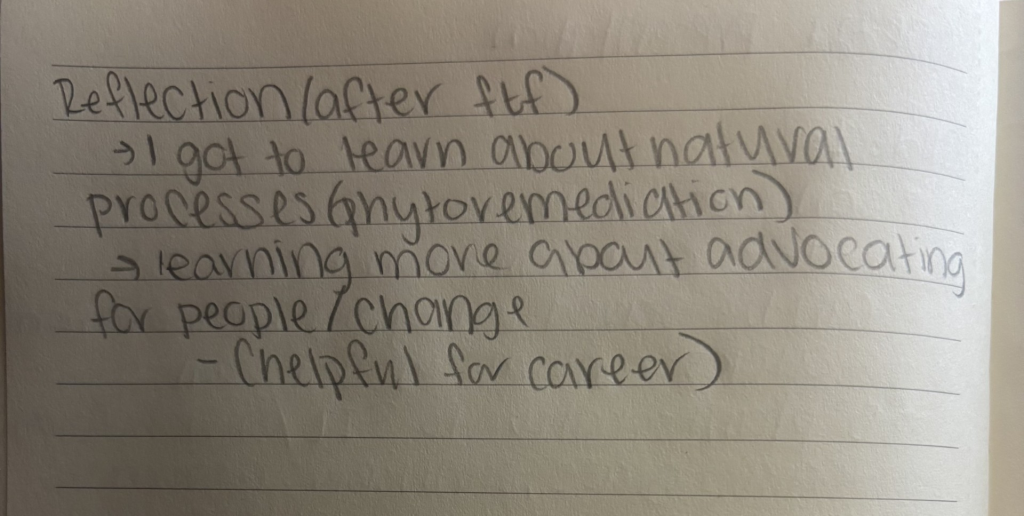 Reflection (after ftf)
→ I got to learn about natural
processes (phytoremediation)
→ learning more about advocating
for people / change
- (helpful for career)